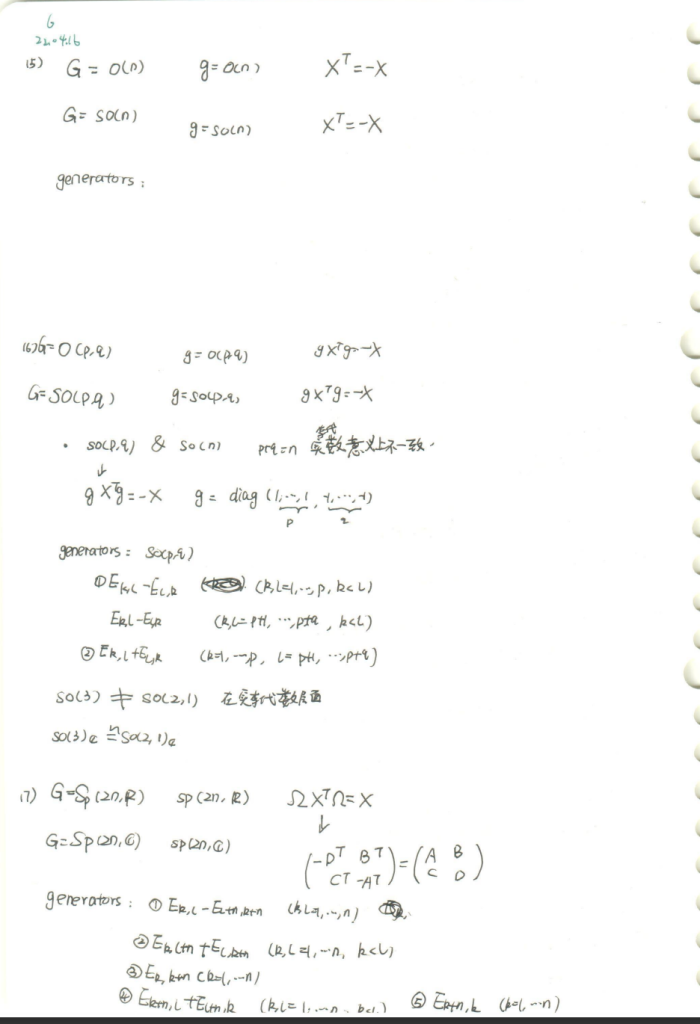 6
22.04.16
(5) G = O(n) g = o(n) X^T = -X
G = SO(n) g = so(n) X^T = -X
generators:
(6) G = O(p,q) g = o(p,q) gX^Tg = -X
G = SO(p,q) g = so(p,q) gX^Tg = -X
· so(p,q) & so(n) p+q=n 实李代数意义上不一致.
↓
gX^Tg = -X g = diag (1,…,1, -1,…,-1)
p q
generators: so(p,q)
① E_{k,l} - E_{l,k} (k,l=1,…,p, k<l)
E_{k,l} - E_{l,k} (k,l=p+1,…,p+q, k<l)
② E_{k,l} + E_{l,k} (k=1,…p, l=p+1,…,p+q)
so(3) ≠ so(2,1) 在实李代数层面
so(3)_ℂ ≅ so(2,1)_ℂ
(7) G = Sp(2n,ℝ) sp(2n,ℝ) ΩX^TΩ = X
↓
G = Sp(2n,ℂ) sp(2n,ℂ) (-D^T B^T C^T -A^T) = (A B C D)
generators: ① E_{k,l} - E_{l+n,k+n} (k,l=1,…,n)
② E_{k,l+n} + E_{l,k+n} (k,l=1,…n, k<l)
③ E_{k,k+n} (k=1,…n)
④ E_{k+n,l} + E_{l+n,k} (k,l=1,…n, k<l) ⑤ E_{k+n,k} (k=1,…n)